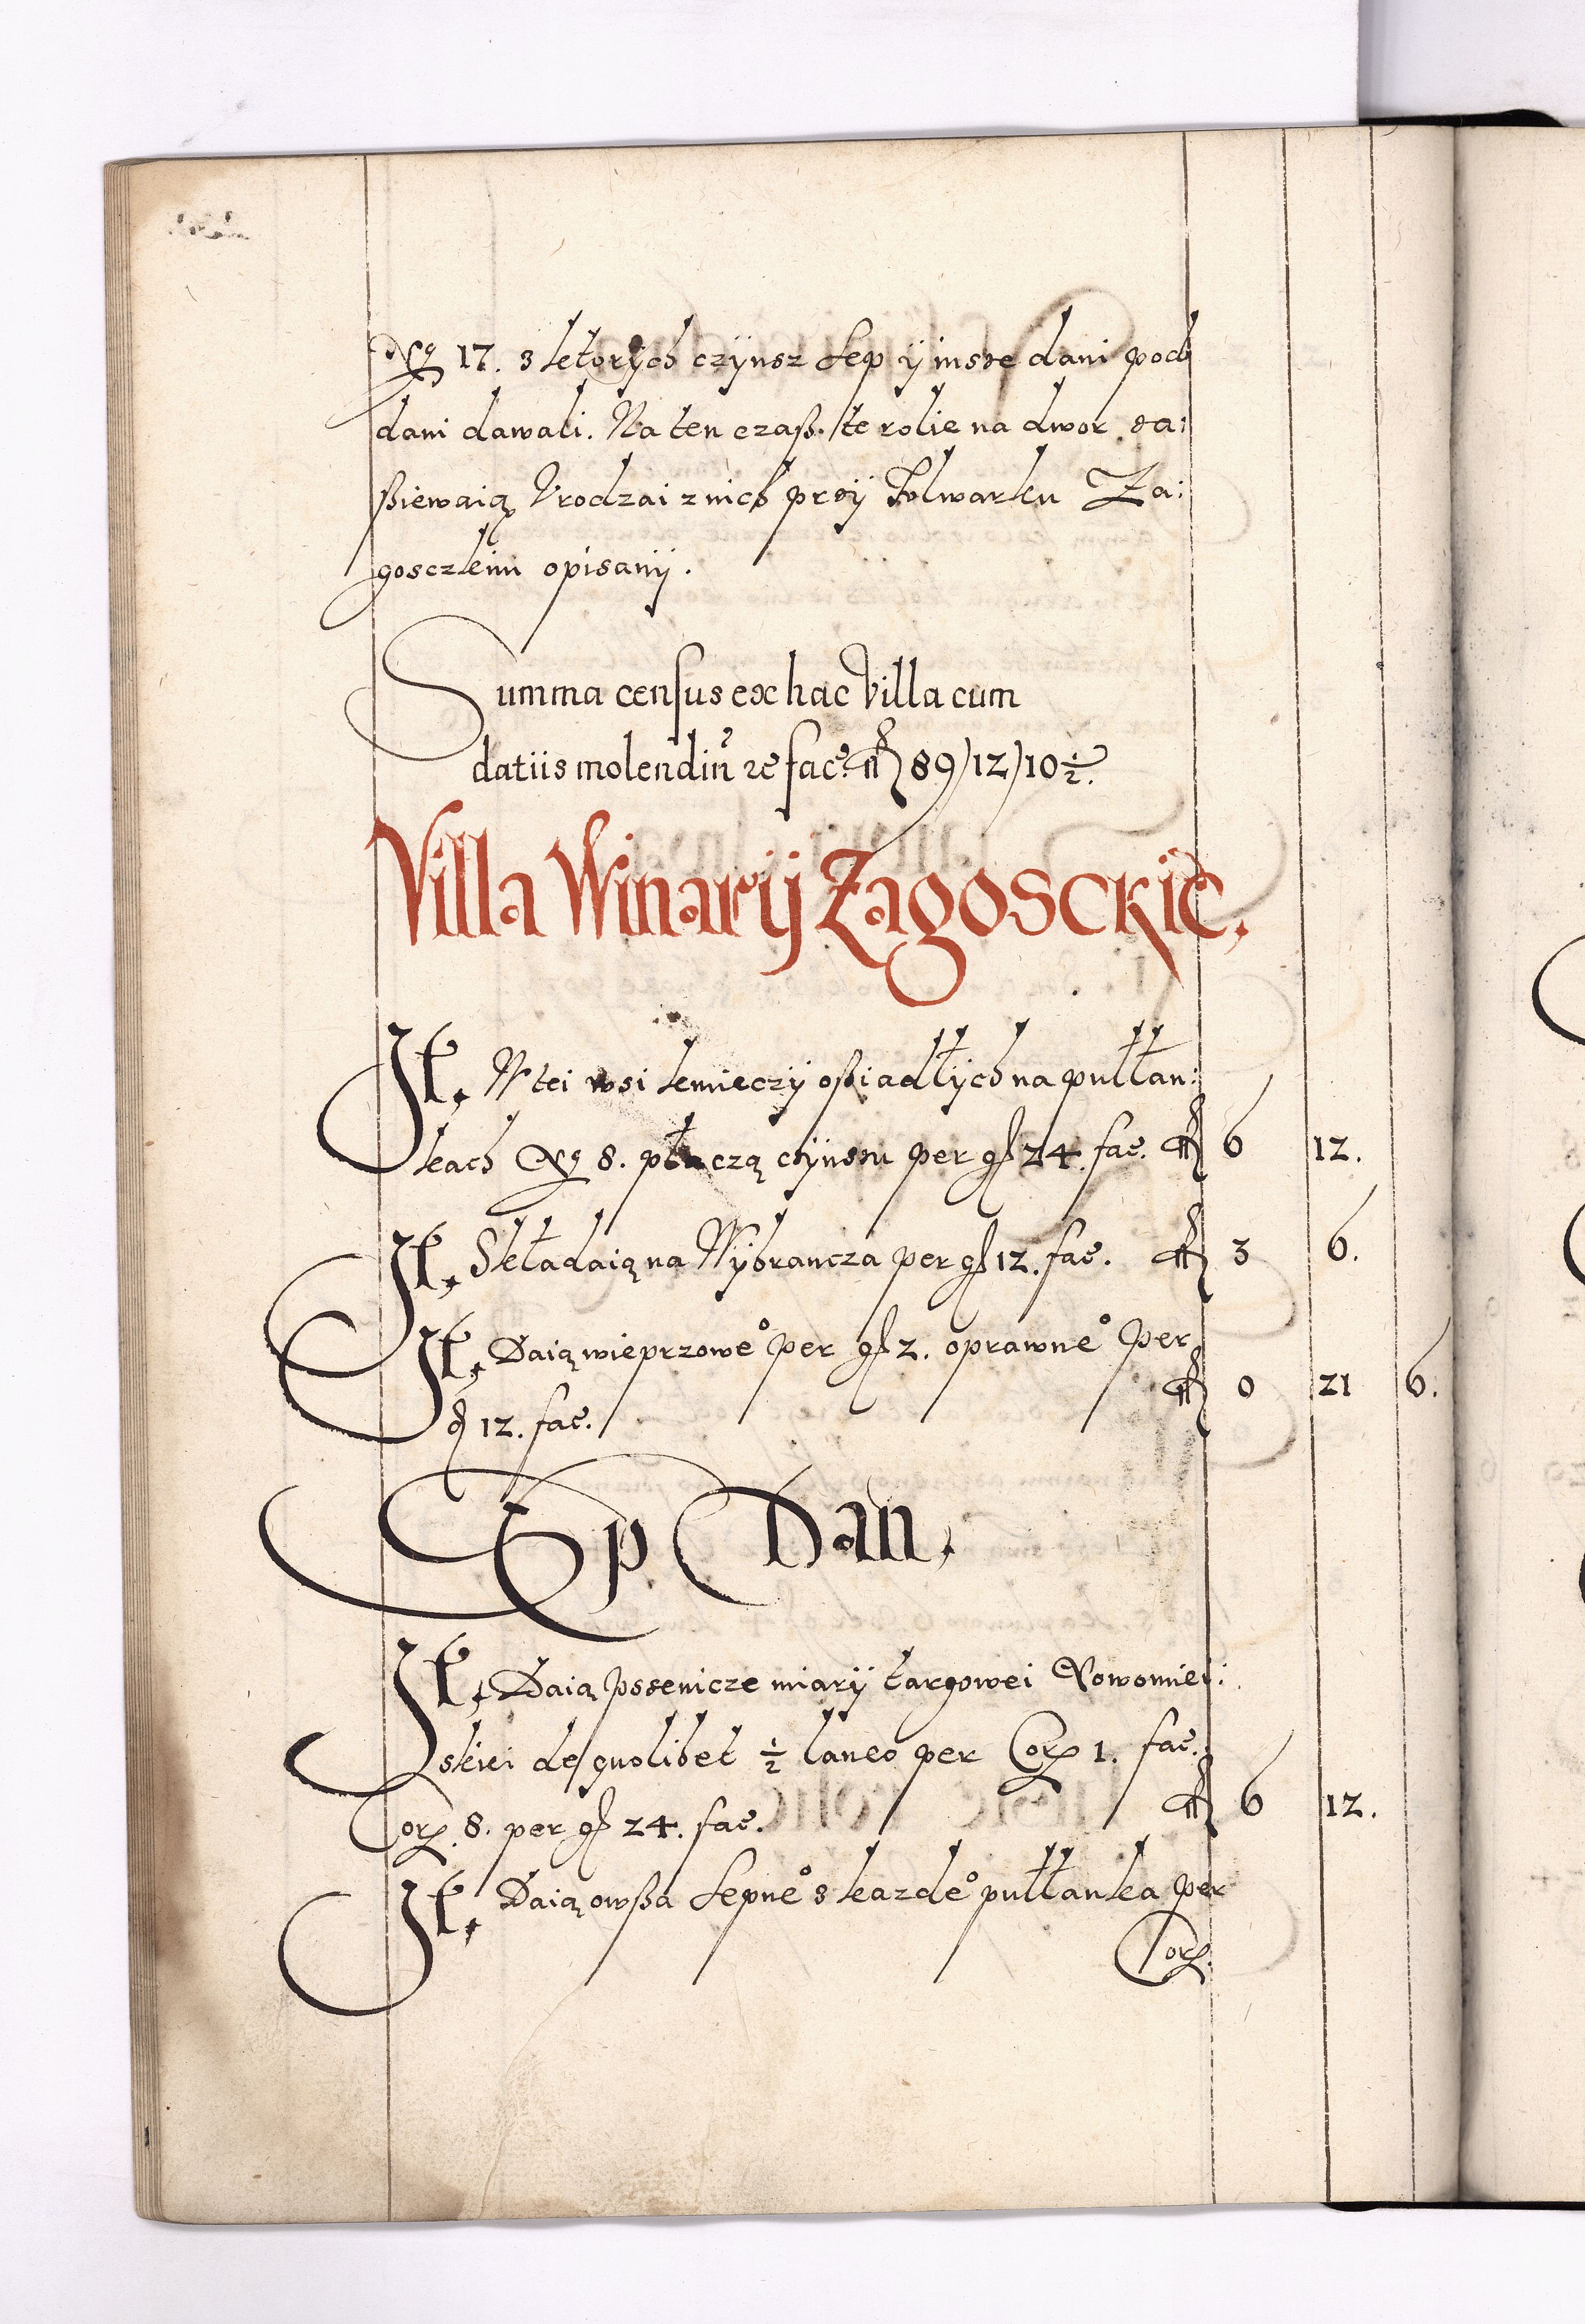 No 17. z ktorych czÿnsz Sep ÿ insze dani pod
dani dawali. Na ten czaß. te rolie na dwor za:
ßiewaią Vrodzai z nich przÿ Folwarku Za:
gosczkim opisanÿ.
Summa census ex hac Villa cum
datiis molendin re fac. fl 89/12/10 ½.
Villa Winarÿ Zagosckie.
It. W tei wsi kmieczÿ oßiadłÿch na pułłan:
kach No 8. płaczą czÿnszu per gr 24. fac. fl 6 12.
It. Składaią na Wÿbrancza per gr 12. fac. fl 3 6.
It. Daią wieprzowe° per gr 2. oprawne° per
d 12. fac. fl 0 21 6.
Sep Dan.
It. Daią pszenicze miarÿ targowei Nowomiei:
skiei de quolibet ½ laneo per Cor 1. fac.
Cor. 8. per gr 24. fac. fl 6 12.
It. Daią owßa Sepne° z kazde° pułłanka per
Cor.